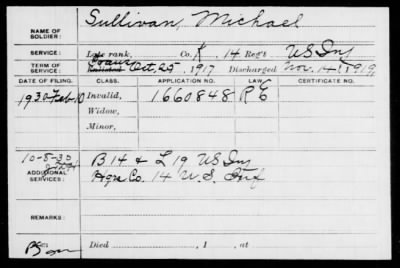 NAME OF SOLDIER: Sullivan, Michael
SERVICE: Late rank, Co. K, 14 Reg't US Inf
TERM OF SERVICE: Enlisted Oct, 25, 1917 Discharged Nov. 14, 1919
DATE OF FILING. CLASS. APPLICATION NO. LAW. CERTIFICATE NO.
1930 Feb 10 Invalid, 1660848 R E
Widow,
Minor,
10-8-30
ADDITIONAL SERVICES: B 14 & L 19 US Inf
Hqrs Co. 14 U.S. Inf
REMARKS:
Died , 1 , at